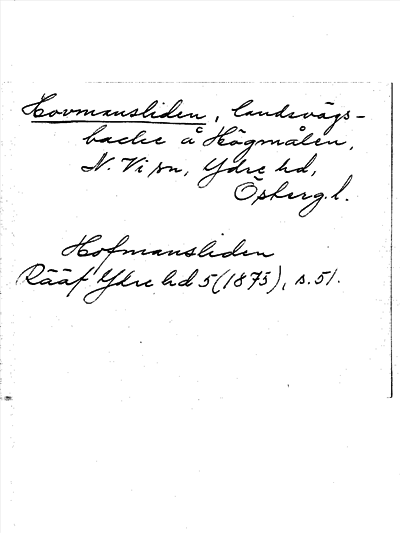 Hovmansliden, landsvägs-
backe å Högmålen,
N. Vi sn, Ydre hd,
Östergl.
Hofmansliden
Rääf Ydre hd 5 (1875), s. 51.